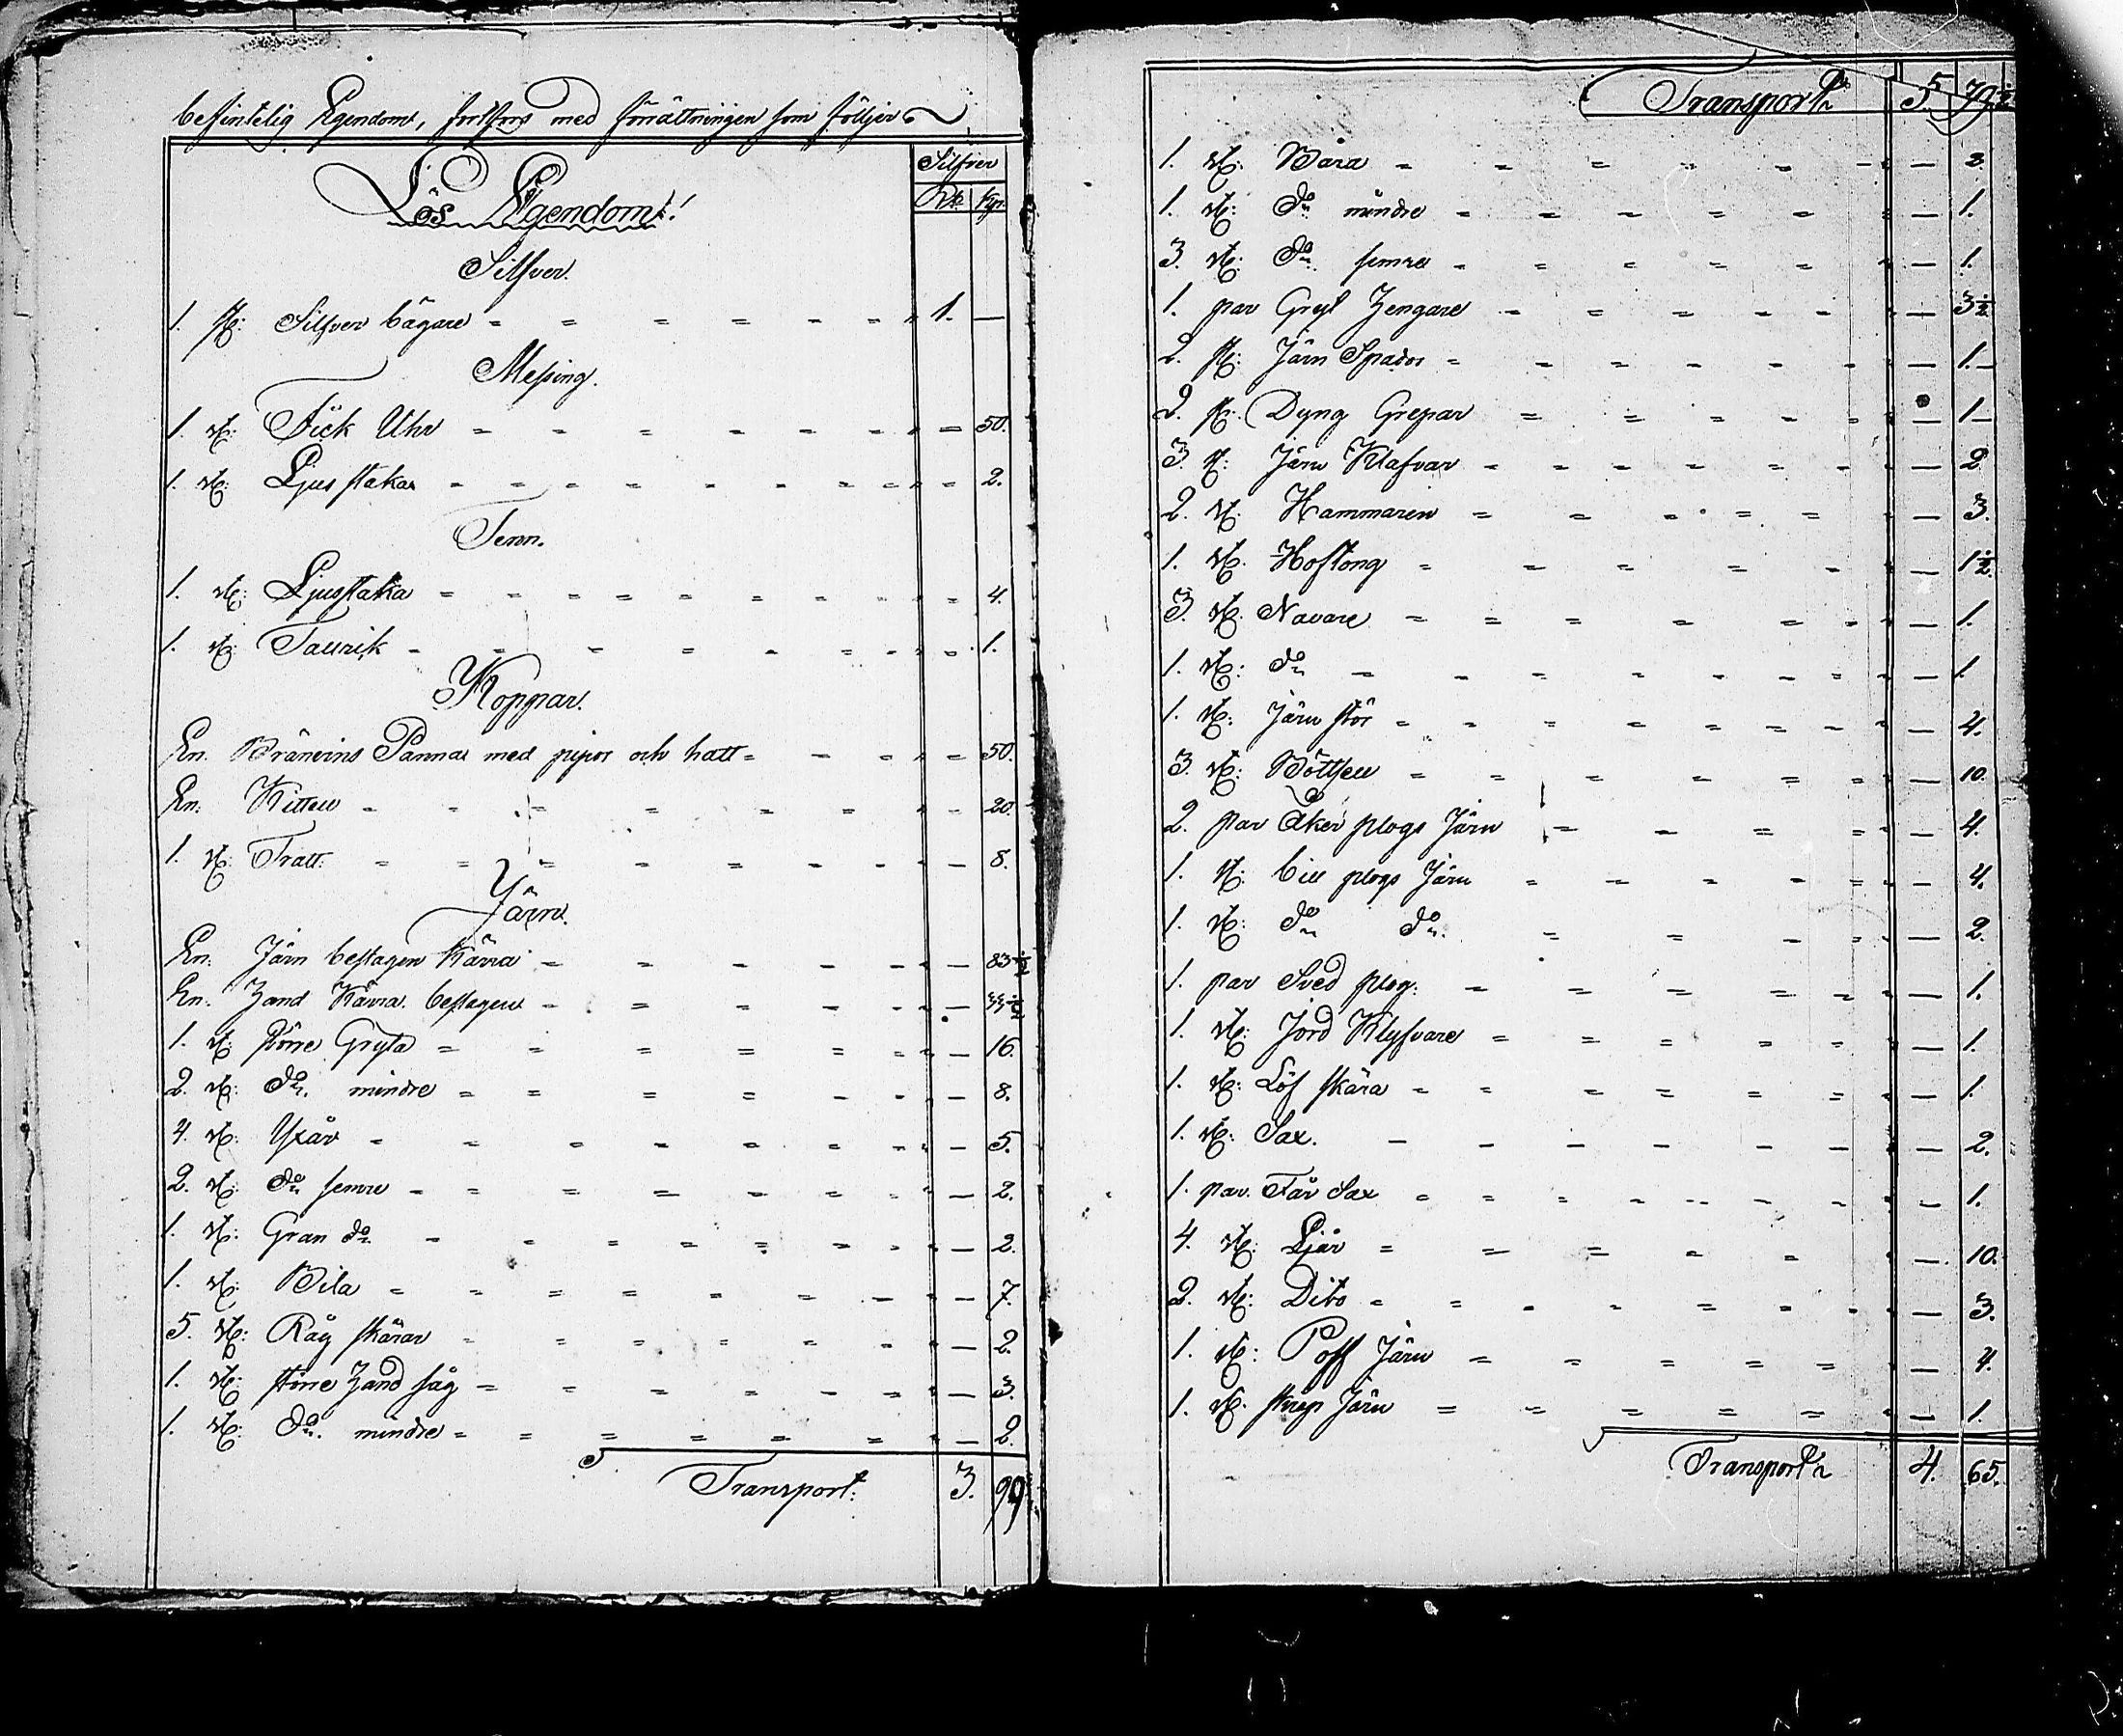 befintelig Egendomt, fortfors med förrättningen som följer
Silfver
Rb. Kpr.
Lös Egendomt!
Silfver.
1. st: Silfver bägare 1. —
Messing.
1. st: Fick Uhr — 50.
1. st: Ljus staka — 2.
Tenn.
1. st: Ljusstaka 4.
1. st: Tallrik 1.
Koppar.
En. Bränvins Panna med pipor och hatt 50.
En. Kittell 20.
1. st: Tratt. — 8.
Järn.
En. Järn beslagen Kärra — 83½
En. Hand Kärra beslagen —
1. st: större Gryta — 16.
2. st: do. mindre — 8.
4. st: Yxär — 5.
2. st: do semre — 2.
1. st: Gran do — 2.
1. st: Bila — 7.
5. st: Råg skärar — 2.
1. st: större Hand såg — 3.
1. st: do. mindre — 2.
Transport: 3. 99
Transport 5. 79½
1. st: Båra — 2.
1. st: do mindre — 1.
3. st: do semre — 1.
1. par Gryt Hengare — 3½
2. st: Järn Spador — 1. —
2. st: Dyng Grepar — 1 —
3. st: Järn Klafvar — 2
2. st: Hammaren — 3.
1. st: Hoftong — 1½.
3. st: Navare — 1.
1. st: do — 1.
1. st: Järn stör — 4.
3. st: — 10.
2. par Åker plogs Järn — 4.
1. st: bill plogs Järn — 4.
1. st: do do. — 2.
1. par Sved plog. — 1.
1. st: Jord Klyfvare — 1.
1. st: Löf skära — 1.
1. st: Sax. — 2.
1. par. Får Sax — 1.
4. st: Ljär — 10.
2. st: Dito — 3.
1. st: Järn — 4.
1. st: Järn — 1.
Transport 4. 65.